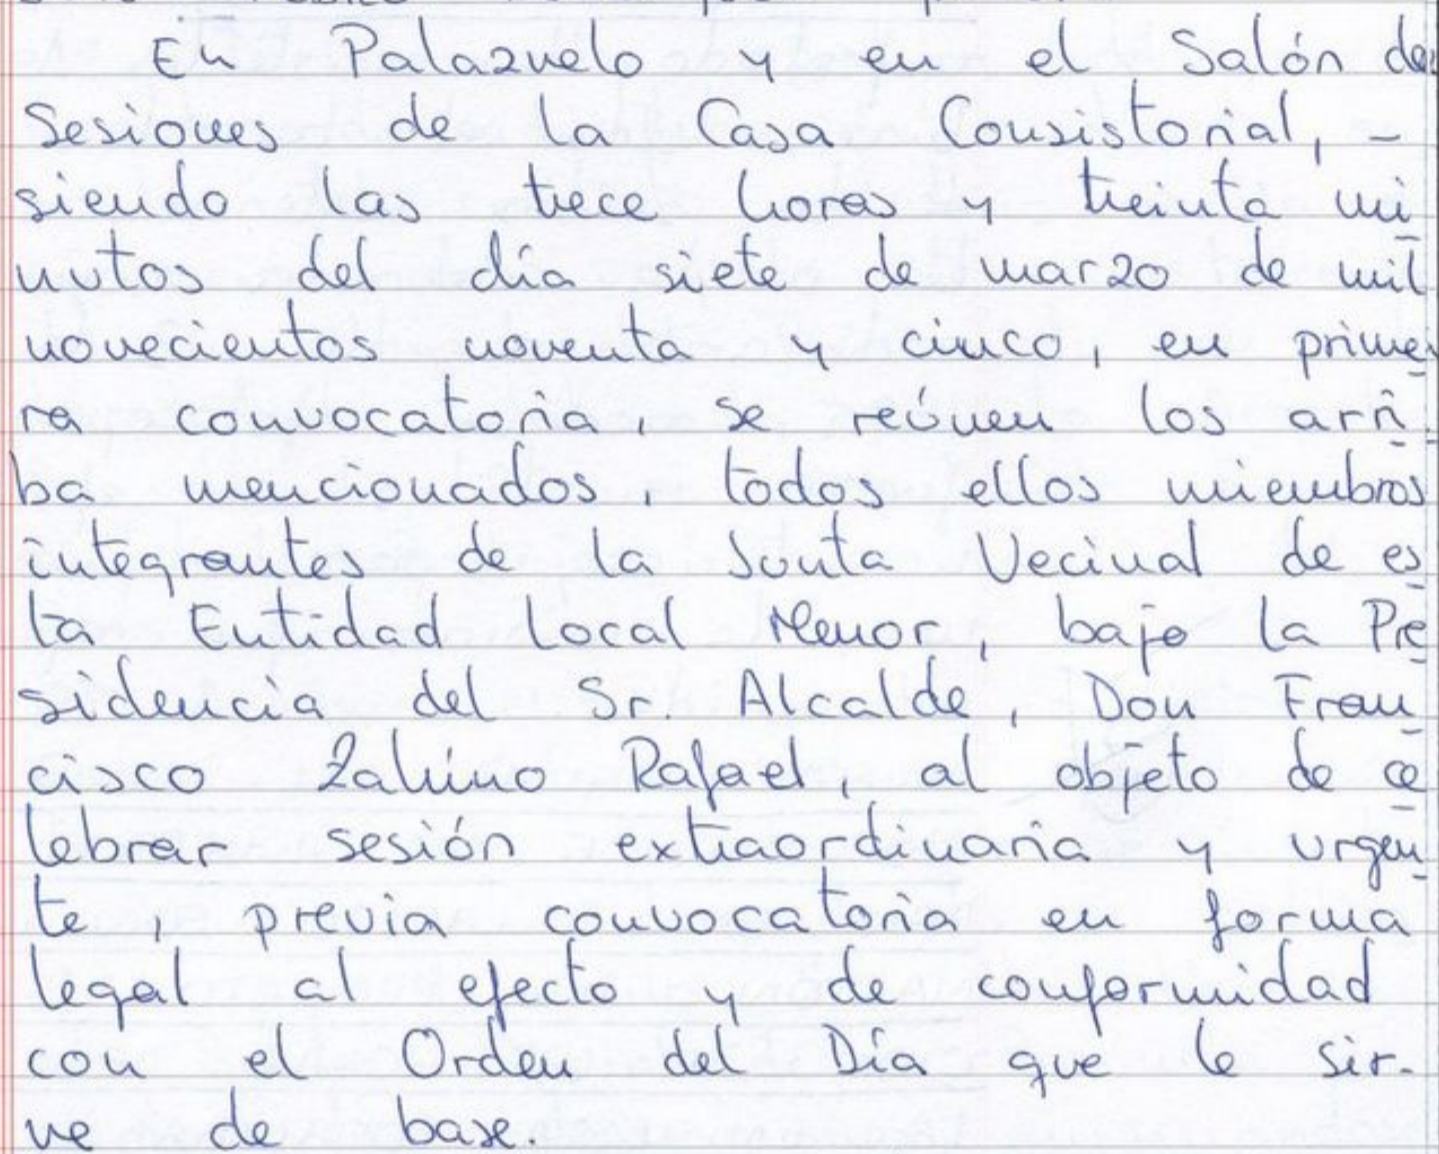 En Palazuelo y en el Salón de
Sesiones de la Casa Consistorial, -
siendo las trece horas y treinta mi
nutos del día siete de marzo de mil
novecientos noventa y cinco, en prime
ra convocatoria, se reúnen los arri-
ba mencionados, todos ellos miembros
integrantes de la Junta Vecinal de es
ta Entidad Local Menor, bajo la Pre
sidencia del Sr. Alcalde, Don Fran
cisco Zahino Rafael, al objeto de ce
lebrar sesión extraordinaria y urgen
te, previa convocatoria en forma
legal al efecto y de conformidad
con el Orden del Día que le sir-
ve de base.